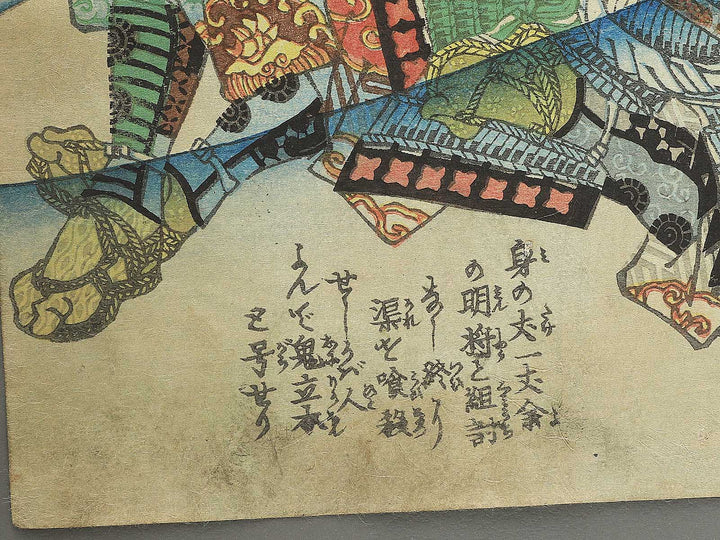 身の丈一丈余
の明将と組討
なし終り
渠を喰殺
せしかバ人
よんで鬼立本
と号せり